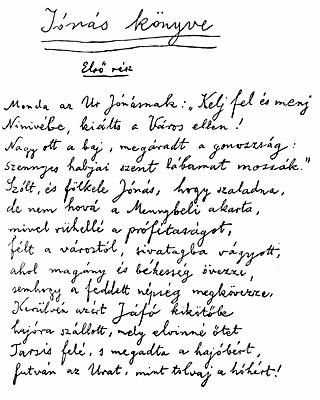 Jónás könyve
Első rész
Monda az Ur Jónásnak: „Kelj fel és menj
Ninivébe, kiálts a Város ellen!
Nagy ott a baj, megáradt a gonoszság:
szennyes habjai szent lábamat mossák."
Szólt, és fölkele Jónás, hogy szaladna,
de nem hová a Mennybéli akarta,
mivel rühellé a prófétaságot,
félt a várostól, sivatagba vágyott,
ahol magány és békesség övezze,
semhogy a feddett népség megkövezze.
Kerülvén azért Jáfó kikötőbe
hajóra szállott, mely elvinné őtet
Tarsis felé, s megadta a hajóbért,
futván az Urat, mint tolvaj a hóhért!